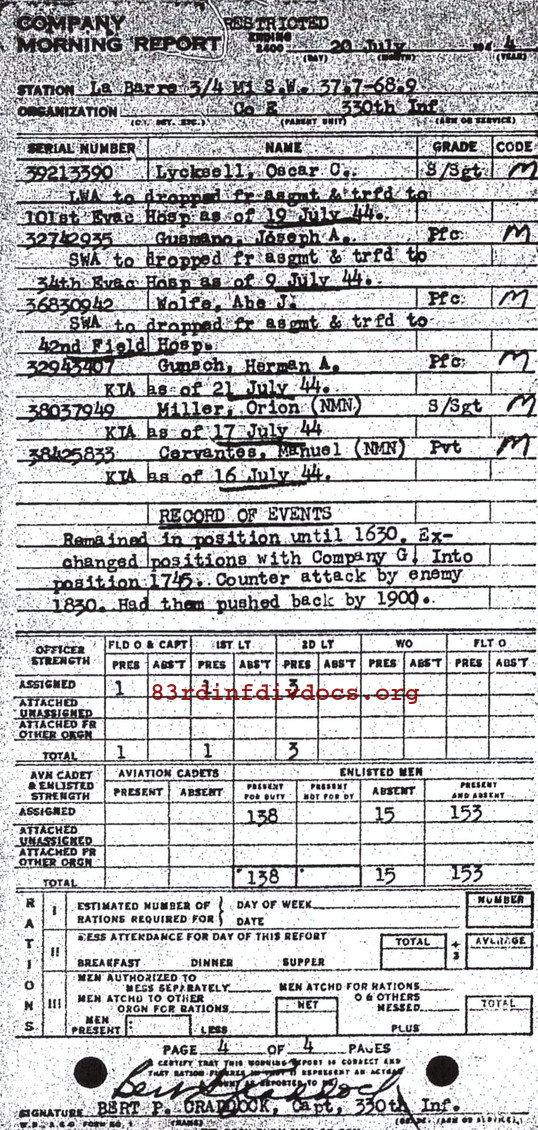 COMPANY RESTRICTED
MORNING REPORT ENDING 2400 20 July 194 4
(DAY) (MONTH) (YEAR)
STATION La Barre 3/4 Mi S.W. 37.7-68.9
ORGANIZATION Co E 330th Inf
(PARENT UNIT) (ARM OR SERVICE)
SERIAL NUMBER NAME GRADE CODE
39213390 Lycksell, Oscar C. S/Sgt M
LWA to dropped fr asgmt & trfd to
101st Evac Hosp as of 19 July 44.
32742935 Gusmano, Joseph A. Pfc M
SWA to dropped fr asgmt & trfd to
34th Evac Hosp as of 9 July 44.
36830942 Wolfe, Abe J. Pfc M
SWA to dropped fr asgmt & trfd to
42nd Field Hosp.
32943407 Gunsch, Herman A. Pfc M
KIA as of 21 July 44.
38037949 Miller, Orion (NMN) S/Sgt M
KIA as of 17 July 44
38425833 Cervantes, Manuel (NMN) Pvt M
KIA as of 16 July 44.
RECORD OF EVENTS
Remained in position until 1630. Ex-
changed positions with Company G. Into
position 1745. Counter attack by enemy
1830. Had them pushed back by 1900.
OFFICER STRENGTH FLD O & CAPT 1ST LT 2D LT WO FLT O
PRES ABS'T PRES ABS'T PRES ABS'T PRES ABS'T PRES ABS'T
ASSIGNED 1 1 3
83rdinfdivdocs.org
ATTACHED UNASSIGNED
ATTACHED FR OTHER ORGN
TOTAL 1 1 3
AVN CADET & ENLISTED STRENGTH AVIATION CADETS ENLISTED MEN
PRESENT ABSENT PRESENT FOR DUTY PRESENT NOT FOR DY ABSENT PRESENT AND ABSENT
ASSIGNED 138 15 153
ATTACHED UNASSIGNED
ATTACHED FR OTHER ORGN
TOTAL 138 15 153
RATIONS
I ESTIMATED NUMBER OF RATIONS REQUIRED FOR DAY OF WEEK DATE NUMBER
II MESS ATTENDANCE FOR DAY OF THIS REPORT TOTAL ÷ 3 AVERAGE
BREAKFAST DINNER SUPPER
III MEN AUTHORIZED TO MESS SEPARATELY MEN ATCHD FOR RATIONS
MEN ATCHD TO OTHER ORGN FOR RATIONS NET O & OTHERS MESSED TOTAL
MEN PRESENT LESS PLUS
PAGE 4 OF 4 PAGES
I CERTIFY THAT THIS MORNING REPORT IS CORRECT AND
THAT RATION FIGURES REPRESENT AN ACTUAL
COUNT AS REPORTED TO ME
SIGNATURE BERT P. CRADDOCK, Capt, 330th Inf.
W.D., A.G.O. FORM NO. 1 (NAME) (GRADE) (ARM OR SERVICE)